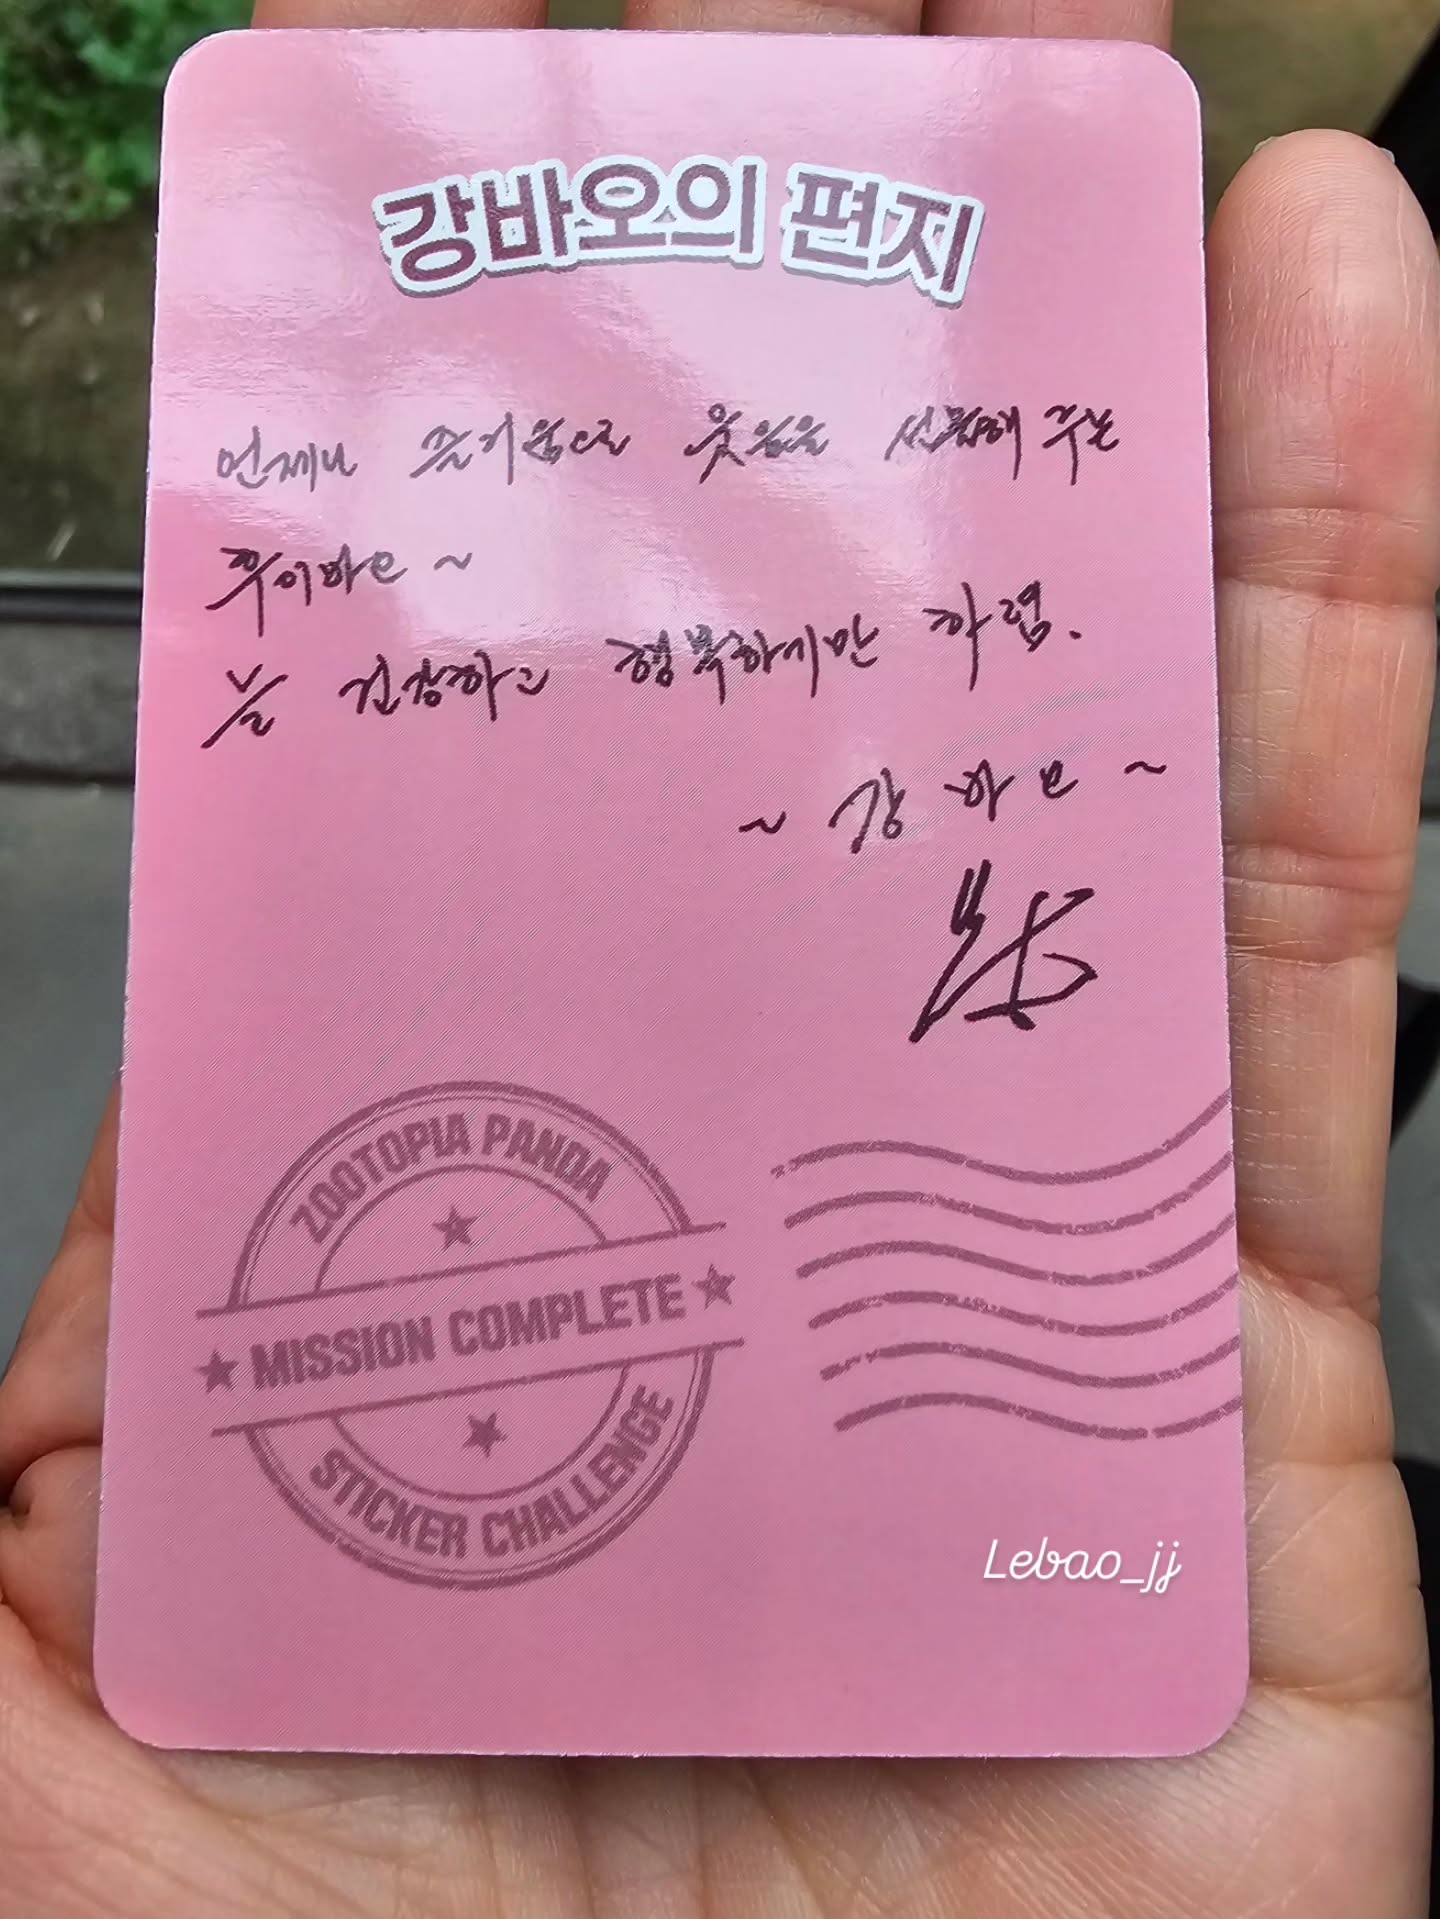 강바오의 편지
언제나 즐거움으로 웃음을 선물해 주는
후이바오~
늘 건강하고 행복하기만 하렴.
~ 강바오 ~
ZOOTOPIA PANDA
★ MISSION COMPLETE ★
STICKER CHALLENGE
Lebao_jj